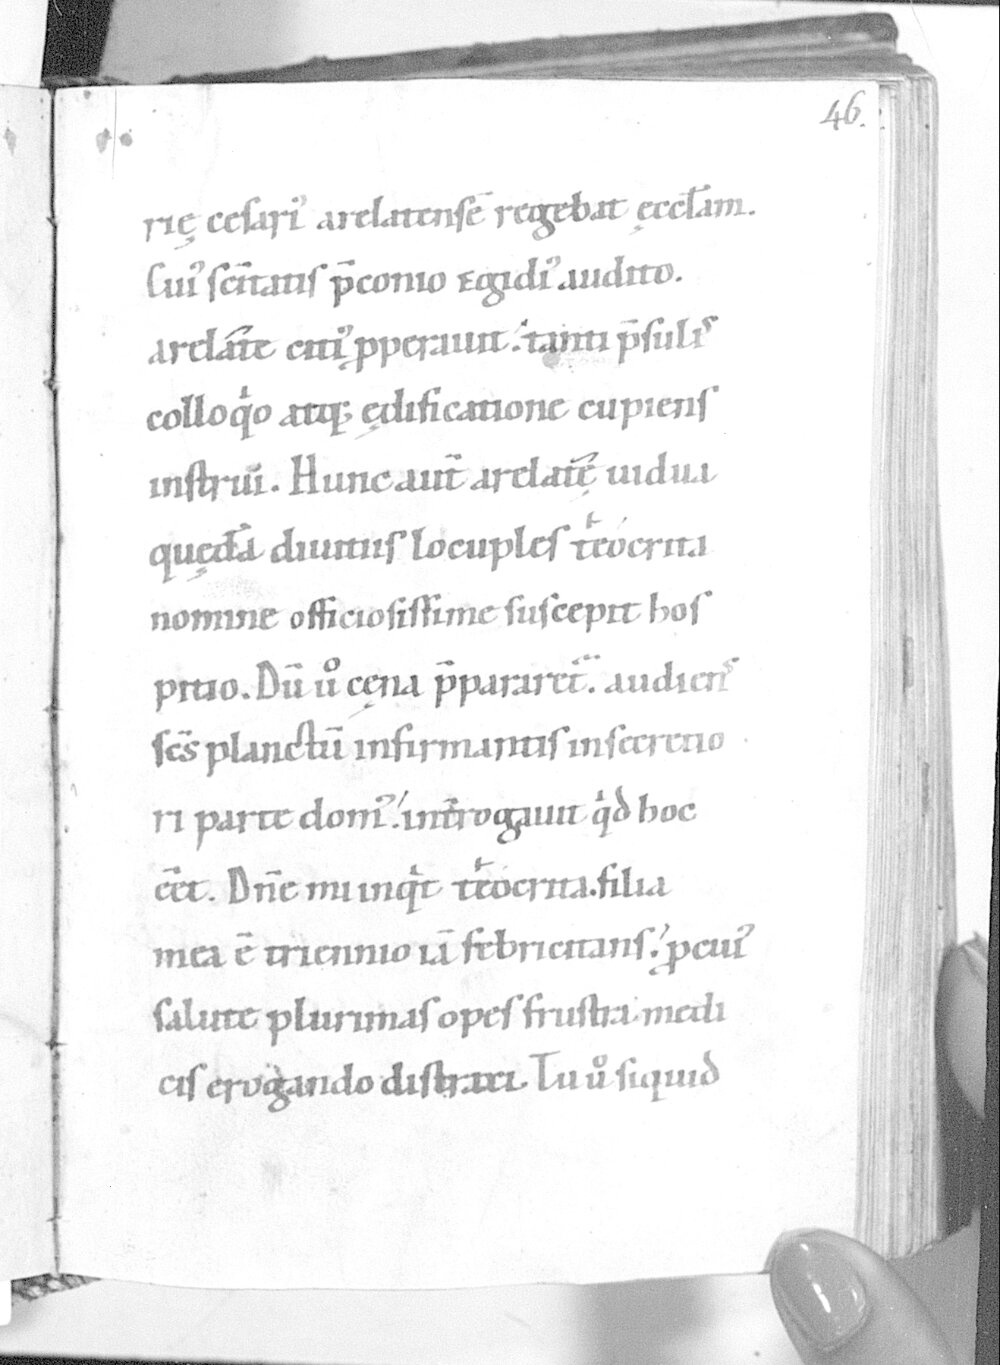 46.
rię cesari᾽ arelatensē regebat ęccƚam.
Cui᾽ sc̄itatis p̄conio Egidi᾽ audito.
arelat̄e citi᾽ ꝓperauit. tanti p̄sulis
colloqͥo atq; ędificatione cupiens
instrui. Hunc aut̄ arelat̄ę uidua
quędā diuitiis locuples teͭocrita
nomine officiosissime suscepit hos
pitio. Dū u° cęna p̄pararet᷑. audiens
sc̄s planctū infirmantis in secretio
ri parte dom᾽. int̄rogauit qͥd hoc
eēt. Dn̄e mi inqͥt teͭocrita. filia
mea ē triennio iā febricitans. ꝓ cui᾽
salute plurimas opes frustra medi
cis erogando distraxi. Tu u° siquid